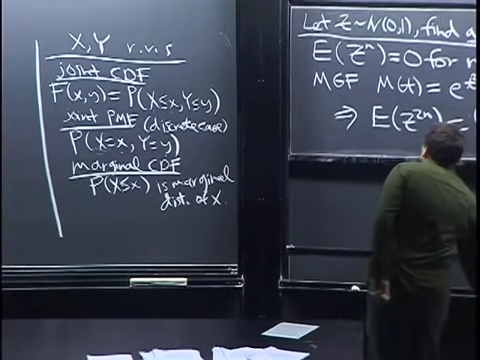 X, Y r.v.s
joint CDF
F(x,y) = P(X≤x, Y≤y)
joint PMF (discrete case)
P(X=x, Y=y)
marginal CDF
P(X≤x) is marginal
dist. of X.
Let Z ~ N(0,1), find a
E(Zⁿ) = 0 for n
MGF M(t) = e
⇒ E(Z²ⁿ) =